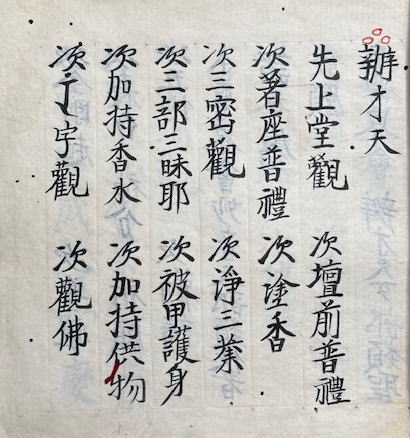 辨才天
先上堂觀 次壇前普禮
次著座普禮 次塗香
次三密觀 次淨三業
次三部三昧耶 次被甲護身
次加持香水 次加持供物
次𑖨𑖽字觀 次觀佛